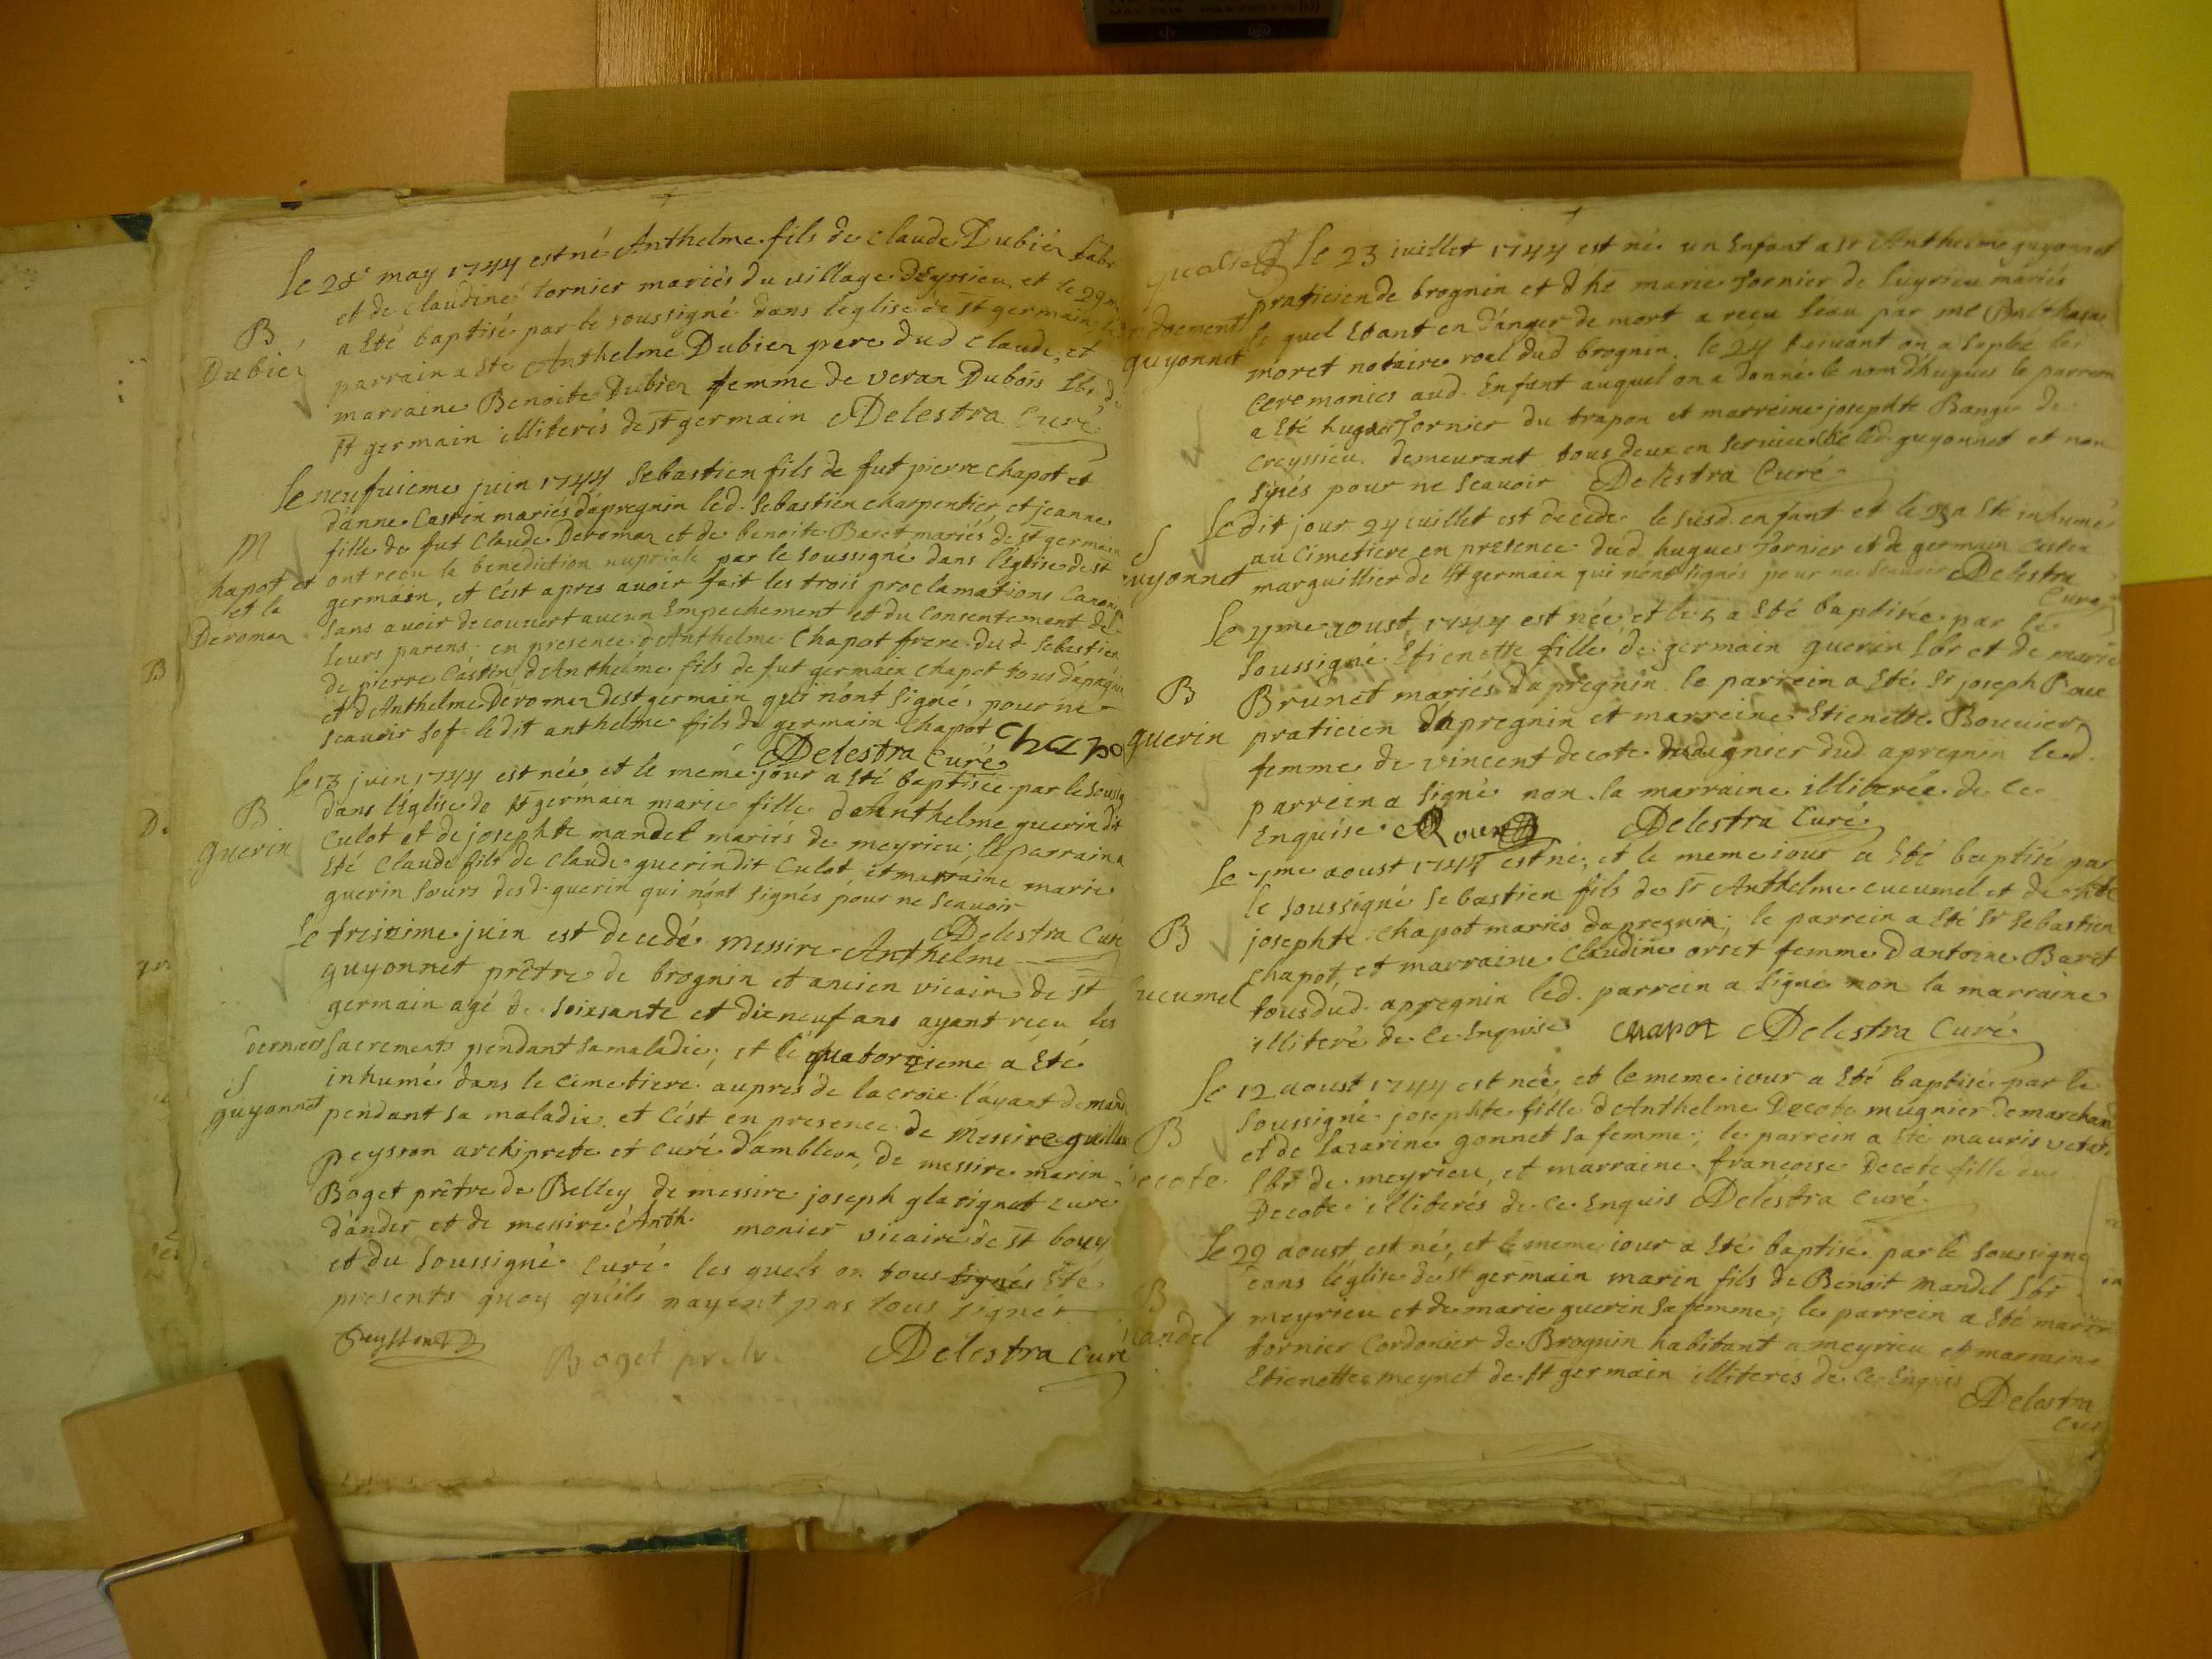 Le 28e may 1744 est né Anthelme fils de Claude Dubier
et de Claudine Tornier mariés du village Deyssieu et le 29
B
a Eté baptisé par le soussigné dans leglise de st germain
Dubier
parrain a Ete Anthelme Dubier pere dud Claude, et
marraine Benoite Dubier femme de veran Dubois Lbr
st germain illiterés de st germain Delestra Curé
Le neufuieme juin 1744 Sebastien fils de fut pierre Chapot et
d'anne Castin mariés dapregnin led. Sebastien charpentier, et jeanne
M
fille de fut Claude Deromas et de benoite Baret mariés de st germain
hapot et
ont recu la benediction nuptiale par le soussigné dans l'Eglise de st
et la
germain, et c'est apres avoir fait les trois proclamations
Deromas
sans avoir decouvert aucun Empechement et du consentement de
leurs parens, en presence d'Anthelme Chapot frere dud. Sebastien
de pierre Castin, d'Anthelme fils de fut germain chapot tous
et d'Anthelme Deromas de st germain qui n'ont signé, pour ne
scauoir sof ledit anthelme fils de germain Chapot Chapo
Delestra Curé
le 13 juin 1744 est née et le meme jour a Eté baptisée par le
B
dans l'Eglise de st germain marie fille d'Anthelme guerin dit
guerin
Culot et de josephte mandel mariés de meyrieu, le parrain a
Eté Claude fils de Claude guerin dit Culot et marraine marie
guerin sours desd. guerin qui n'ont signés pour ne scauoir
Delestra Curé
Le tresieme juin est decedé messire Anthelme
guyonnet prêtre de brognin et ancien vicaire de st
germain agé de soixante et dixneuf ans ayant recu les
derniers sacrements pendant sa maladie, et le quatorzieme a Eté
inhumé dans le cimetiere aupres de la croix l'ayant
S
guyonnet
pendant sa maladie, et c'est en presence de messire
peysson archiprete et curé d'ambleon, de messire marin
Boget prêtre de Belley, de messire joseph glarignet cure
d'ander, et de messire Anth. monier vicaire de st bouy
et du soussigné curé les quels on tous signés Eté
presents quoy quils nayent pas tous signér
Peysson
Boget
Delestra Curé
Le 23 iuillet 1744 est né un Enfant a sr Anthelme guyonnet
praticien de brognin et d'hte marie Tornier de Luyrieu mariés
le quel Etant en d'anger de mort a recu leau par me
guyonnet
moret notaire roal dud brognin, le 24 suivant on a
Ceremonies aud. Enfant auquel on a donné le nom d'hugues le
a Eté hugues Tornier du trapon et marreine josephte Banger de
Creyssieu demeurant tous deux en seruice led. guyonnet et non
sinés pour ne scauoir Delestra Curé
Le dit jour 24 iuillet est decede le susd. enfant et le a Eté inhumé
S
au Cimetiere en presence dud hugues Tornier et de germain Castin
guyonnet
marguillier de st germain qui n'ont signés pour ne scauoir Delestra
Curé
Le 4me aoust 1744 est née, et le 5 a Eté baptisée par le
soussigné Etienette fille de germain guerin Lbr et de marie
B
Brunet mariés dapregnin le parrein a Eté sr joseph
guerin
praticien dapregnin et marreine Etienette Bouvier
femme de vincent decote dud apregnin led.
parrein a signé non la marraine illiterée de ce
Enquise Delestra Curé
Le 7me aoust 1744 est né, et le meme iour a Eté baptisé par
le soussigné Sebastien fils de sr Anthelme cucumel et de hte
B
josephte Chapot mariés dapregnin, le parrein a Eté sr Sebastien
chapot, et marraine Claudine orset femme d'antoine Baret
ucumel
tous dud. apregnin led. parrein a signé non la marraine
illiteré de ce Enquise Chapot Delestra Curé
Le 12 aoust 1744 est née et le meme iour a Eté baptisé par le
B
soussigné josephte fille d'Anthelme Decote mugnier de
et de Lazarine gonnet sa femme, le parrein a Eté mauris
ecote
Lbr de meyrieu, et marraine francoise Decote fille
Decote illiterés de ce Enquis Delestra Curé
Le 29 aoust est né, et le meme iour a Eté baptisé par le soussigné
dans l'église de st germain marin fils de Benoit mandel Lbr
B
meyrieu et de marie guerin sa femme, le parrein a Eté marin
andel
tornier Cordonier de Brognin habitant a meyrieu et marraine
Etienette meynet de st germain illiterés de ce Enquis
Delestra
Curé